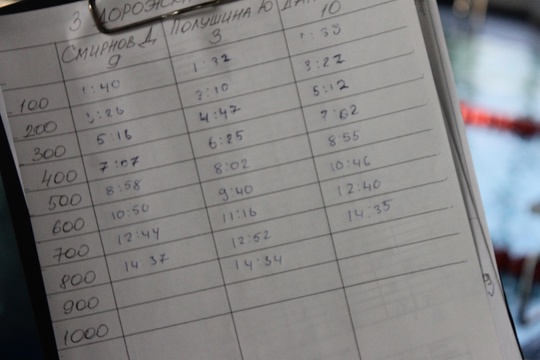 3 ДОРОЖК
СМИРНОВ Д. ПОЛУШИНА Ю
9 3 10
100 1:40 1:32
200 3:26 3:10 3:22
300 5:16 4:47 5:12
400 7:07 6:25 7:02
500 8:58 8:02 8:55
600 10:50 9:40 10:46
700 12:44 11:16 12:40
800 14:37 12:52 14:35
900 14:34
1000